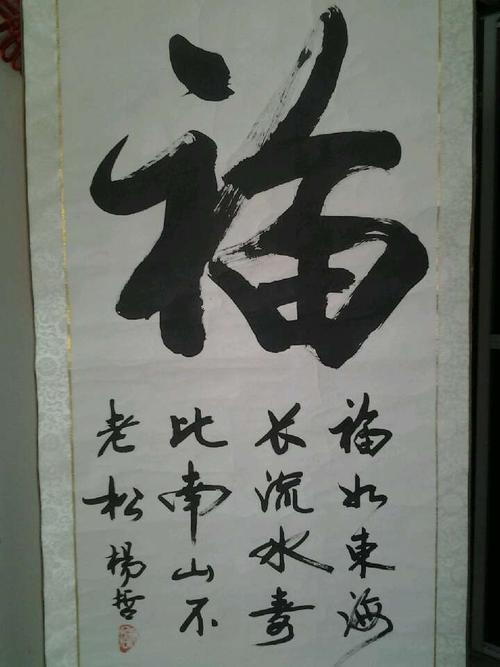 福
福如東海
长流水寿
比南山不
老松
楊哲